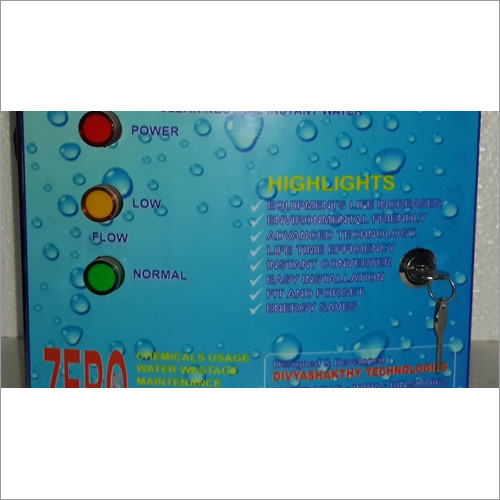 INSTANT WATER
POWER
LOW
FLOW
NORMAL
HIGHLIGHTS
EQUIPMENTS LIFE INCREASES
ENVIRONMENTAL FRIENDLY
ADVANCED TECHNOLOGY
LIFE TIME EFFICIENCY
INSTANT CONVERTER
EASY INSTALLATION
FIT AND FORGET
ENERGY SAVES
ZERO
CHEMICALS USAGE
WATER WASTAGE
MAINTENANCE
Designed & Developed
DIVYASHAKTHY TECHNOLOGIES